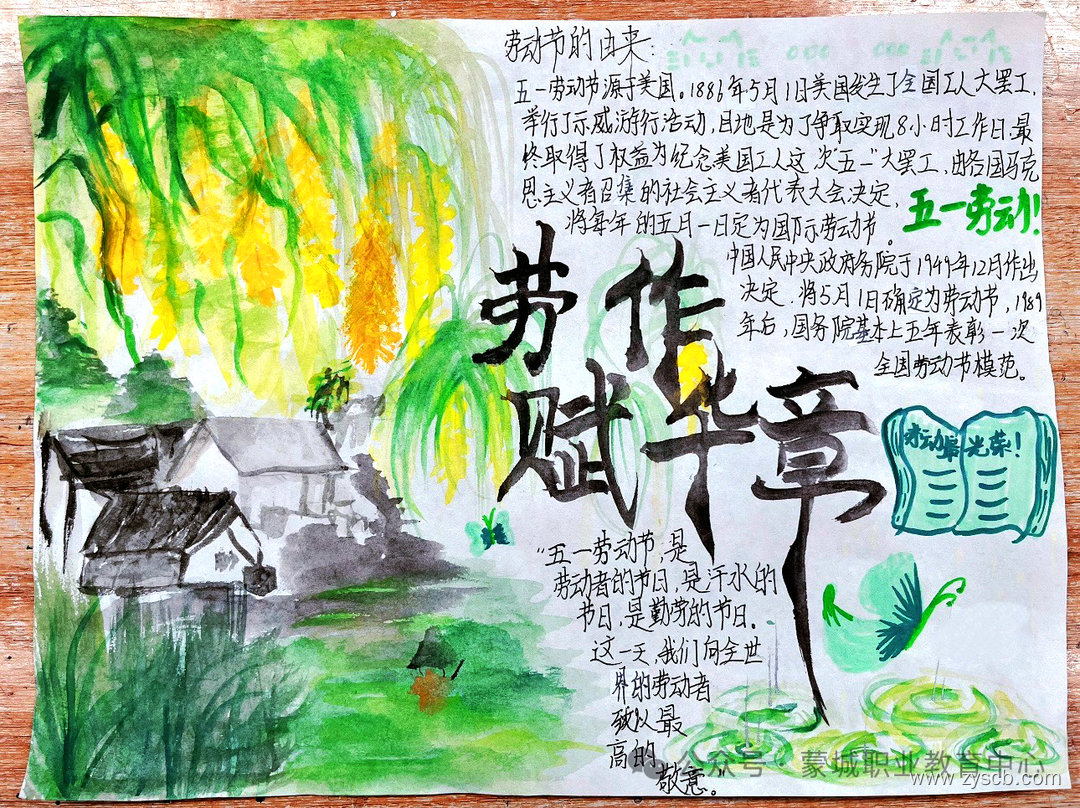 劳动节的由来：
五一劳动节源于美国。1886年5月1日美国发生了全国工人大罢工，
举行了示威游行活动，目地是为了争取实现8小时工作日.最
终取得了权益为纪念美国工人这次五一"大罢工，由各国马克
思主义者召集的社会主义者代表大会决定，
将每年的五月一日定为国际示劳动节。
五一劳动!
中国人民中央政府务院于1949年12月作出
决定.将5月1日确定为劳动节，1989
年后，国务院基本上五年表彰一次
全国劳动节模范。
劳作
赋华章
光荣!
"五一劳动节，是
劳动者的节日，是汗水的
节日，是勤劳的节日。
这一天，我们向全世
界的劳动者
致以最
高的
敬意。
公众号·蒙城职业教育中心
www.zyscb.com